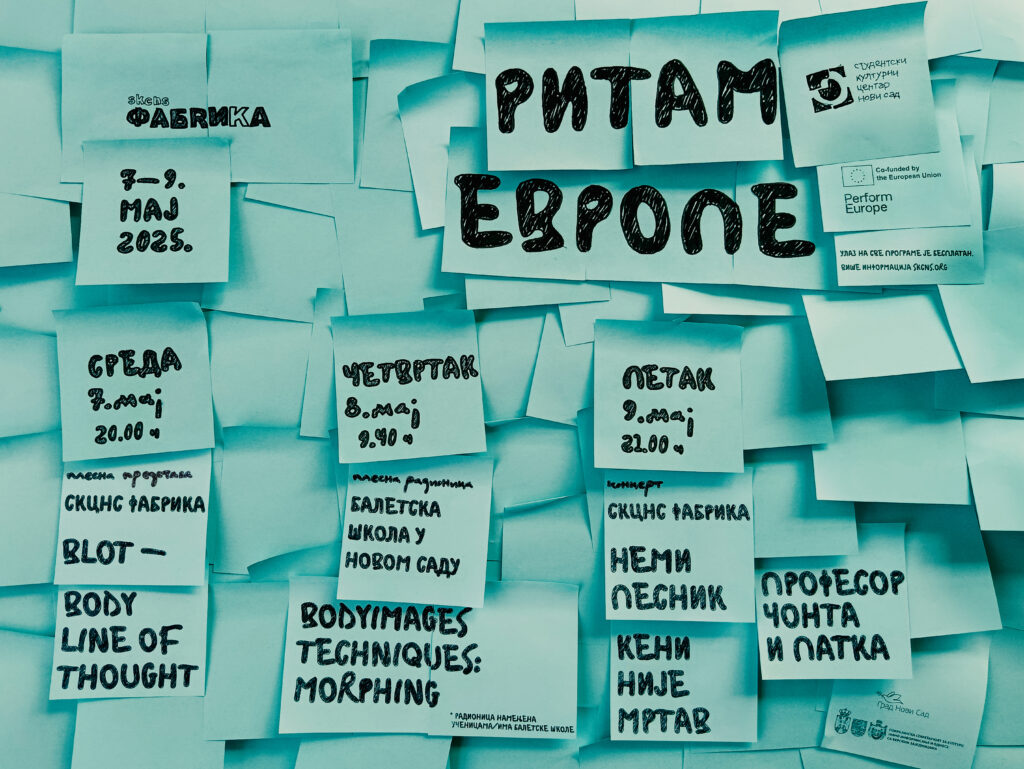 skcns
ФАБRИКА
РИТАМ
ЕВРОПЕ
студентски
културни
центар
нови сад
Co-funded by
the European Union
Perform
Europe
УЛАЗ НА СВЕ ПРОГРАМЕ ЈЕ БЕСПЛАТАН.
ВИШЕ ИНФОРМАЦИЈА SKCNS.ORG
7—9.
МАЈ
2025.
СРЕДА
7. мај
20.00 ч
плесна представа
СКЦНС ФАБРИКА
BLOT —
BODY
LINE OF
THOUGHT
ЧЕТВРТАК
8. мај
9.40 ч
плесна радионица
БАЛЕТСКА
ШКОЛА У
НОВОМ САДУ
BODYIMAGES
TECHNIQUES:
MORPHING
* РАДИОНИЦА НАМЕЊЕНА
УЧЕНИЦАМА/ИМА БАЛЕТСКЕ ШКОЛЕ
ПЕТАК
9. мај
21.00 ч
концерт
СКЦНС ФАБРИКА
НЕМИ
ПЕСНИК
КЕНИ
НИЈЕ
МРТАВ
ПРОФЕСОР
ЧОНТА
И ПАТКА
Град Нови Сад